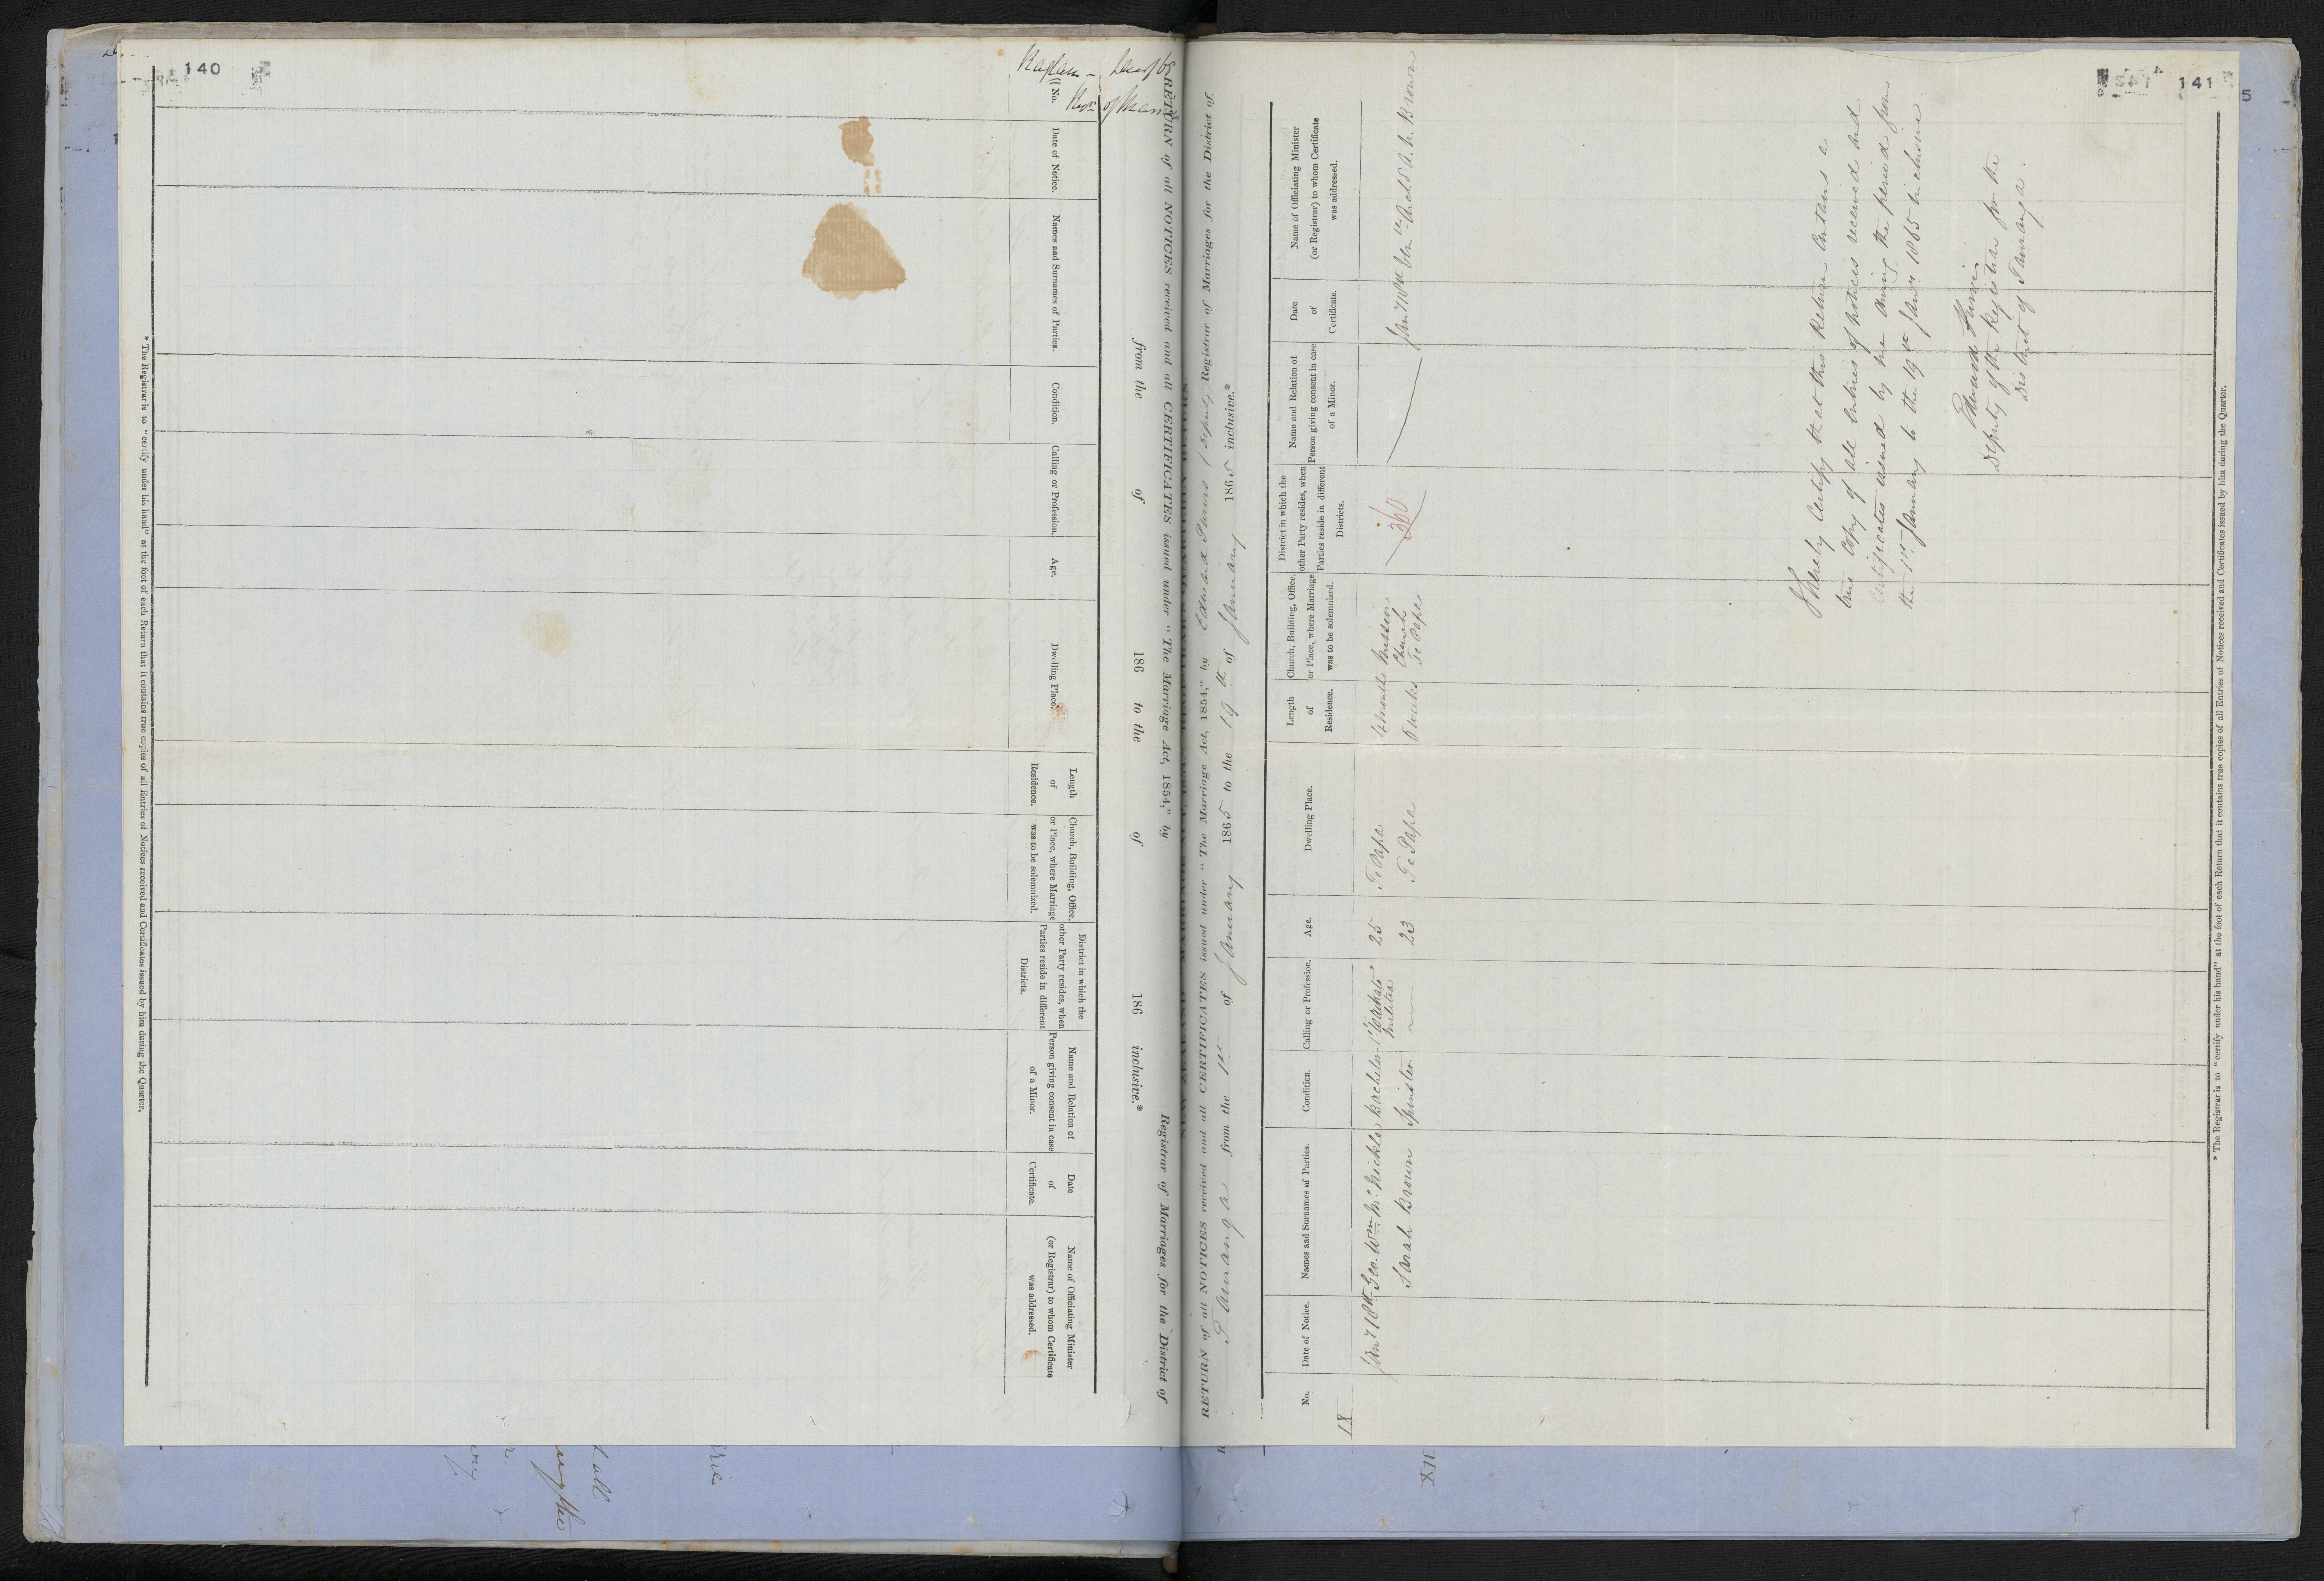 140
No.
Date of Notice.
Names and Surnames of Parties.
Condition.
Calling or Profession.
Age.
Dwelling Place.
Length
of
Residence.
Church, Building, Office,
or Place, where Marriage
was to be solemnized.
District in which the
other Party resides, when
Parties reside in different
Districts.
Name and Relation of
Person giving consent in case
of a Minor.
Date
of
Certificate.
Name of Officiating Minister
(or Registrar) to whom Certificate
was addressed.
RETURN of all NOTICES received and all CERTIFICATES issued under "The Marriage Act, 1854," by Registrar of Marriages for the District of
from the of 186 to the of 186 inclusive.*
* The Registrar is to "certify under his hand" at the foot of each Return that it contains true copies of all Entries of Notices received and Certificates issued by him during the Quarter.
141
5
RETURN of all NOTICES received and all CERTIFICATES issued under "The Marriage Act, 1854," by Edward (Deputy) Registrar of Marriages for the District of
Tauranga from the 1st of January 1865 to the 19th of January 1865 inclusive.*
No.
Date of Notice.
Names and Surnames of Parties.
Condition.
Calling or Profession.
Age.
Dwelling Place.
Length
of
Residence.
Church, Building, Office,
or Place, where Marriage
was to be solemnized.
District in which the
other Party resides, when
Parties reside in different
Districts.
Name and Relation of
Person giving consent in case
of a Minor.
Date
of
Certificate.
Name of Officiating Minister
(or Registrar) to whom Certificate
was addressed.
IX
Jany 18th Geo. Wm. McNickle Bachelor 1st Waikato Militia 25 Te Papa 4 months Mission Church Te Papa 360 Jany 18th Ven. Archd. A. N. Brown
Sarah Brown Spinster 23 Te Papa weeks
I hereby Certify that this Return Contains a
true Copy of all Entries of Notices received and
Certificates issued by me during the period from
the 1st January to the 19th Jany 1865 inclusive
Edward
Deputy of the Registrar for the
District of Tauranga.
* The Registrar is to "certify under his hand" at the foot of each Return that it contains true copies of all Entries of Notices received and Certificates issued by him during the Quarter.
XII